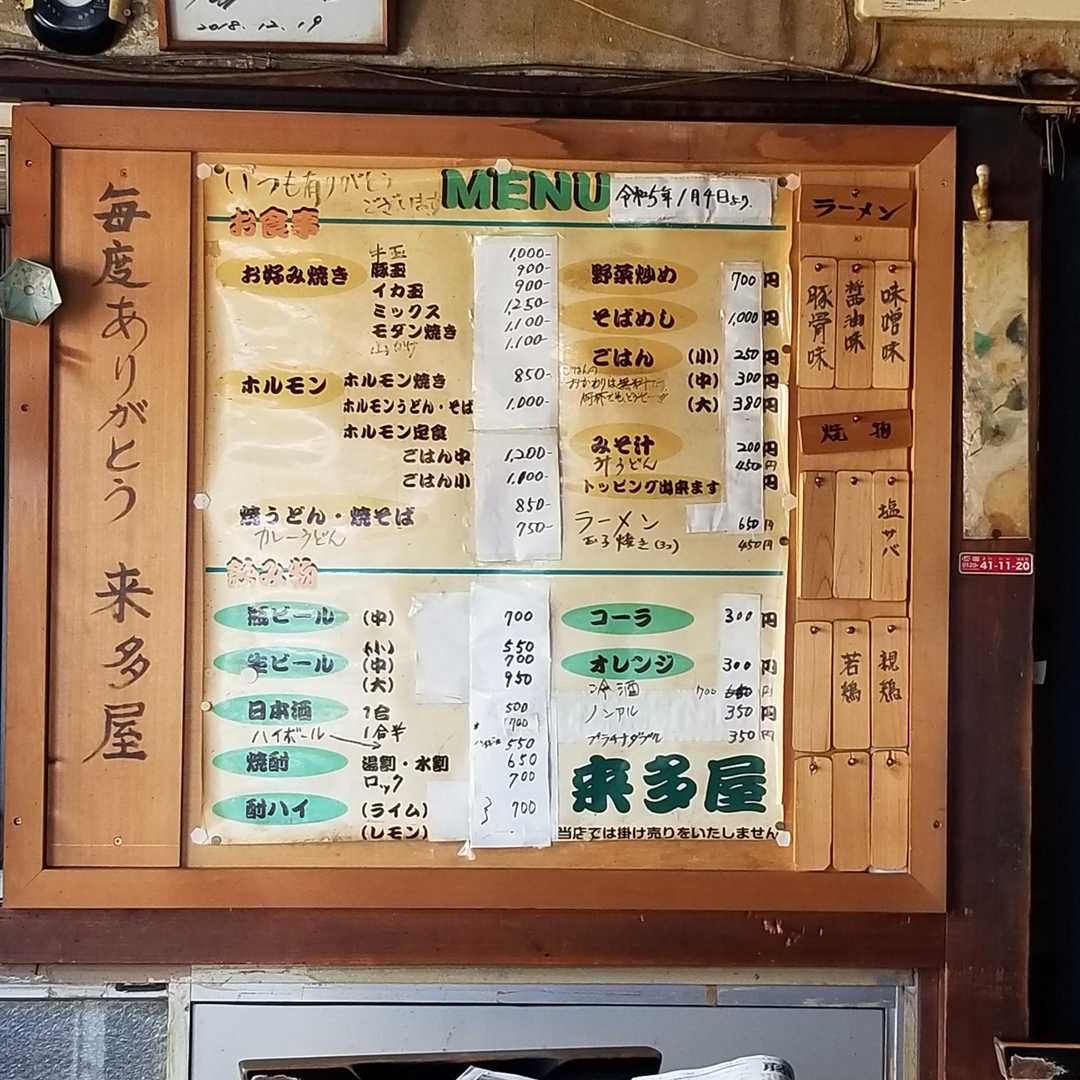 2018.12.19
毎度ありがとう 来多屋
いつも有りがとう
ございます
MENU
令和5年1月4日より
お食事
お好み焼き
牛玉 1,000-
豚玉 900-
イカ玉 900-
ミックス 1,250-
モダン焼き 1,100-
1,100-
ホルモン
ホルモン焼き 850-
ホルモンうどん・そば 1,000-
ホルモン定食
ごはん中 1,200-
ごはん小 1,100-
焼うどん・焼そば 850-
カレーうどん 750-
野菜炒め 700円
そばめし 1,000円
ごはん (小) 250円
(中) 300円
(大) 380円
ごはんの
おかわりは無料です
みそ汁 200円
汁うどん 450円
トッピング出来ます 円
ラーメン 650円
玉子焼き(3コ) 450円
飲み物
瓶ビール (中) 700
生ビール (小) 550
(中) 700
(大) 950
日本酒 1合 500
1合半 700
ハイボール 550
焼酎 湯割・水割 650
ロック 700
酎ハイ (ライム)
(レモン) 700
コーラ 300円
オレンジ 300円
冷酒 700円
ノンアル 350円
プラチナダブル 350円
来多屋
当店では掛け売りをいたしません
ラーメン
味噌味
醤油味
豚骨味
焼物
塩サバ
親鶏
若鶏
0120-41-11-20